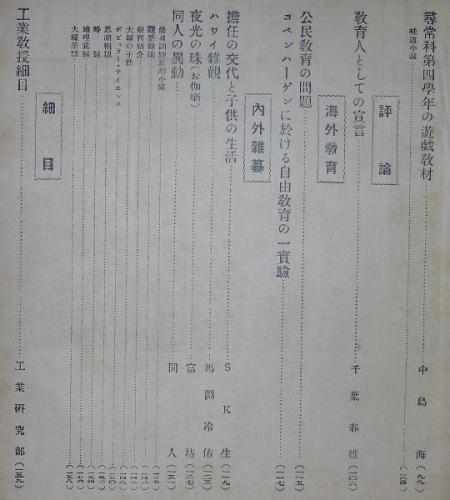 尋常科第四學年の遊戲教材 中島海 (九九)
味道小話
評論
教育人としての宣言 千葉春雄 (一〇八)
海外教育
公民教育の問題 (一一五)
コペンハーゲンに於ける自由教育の一實驗 (一一七)
內外雜纂
擔任の交代と子供の生活 SK生 (一一九)
ハワイ雜觀 馬淵冷佑 (一二三)
夜光の珠(お伽噺) 富坊 (一二七)
同人の異動 同人
大塚の子供
ポピュラー・サイエンス
大塚茶話
細目
工業教授細目 工業研究部 (一五九)